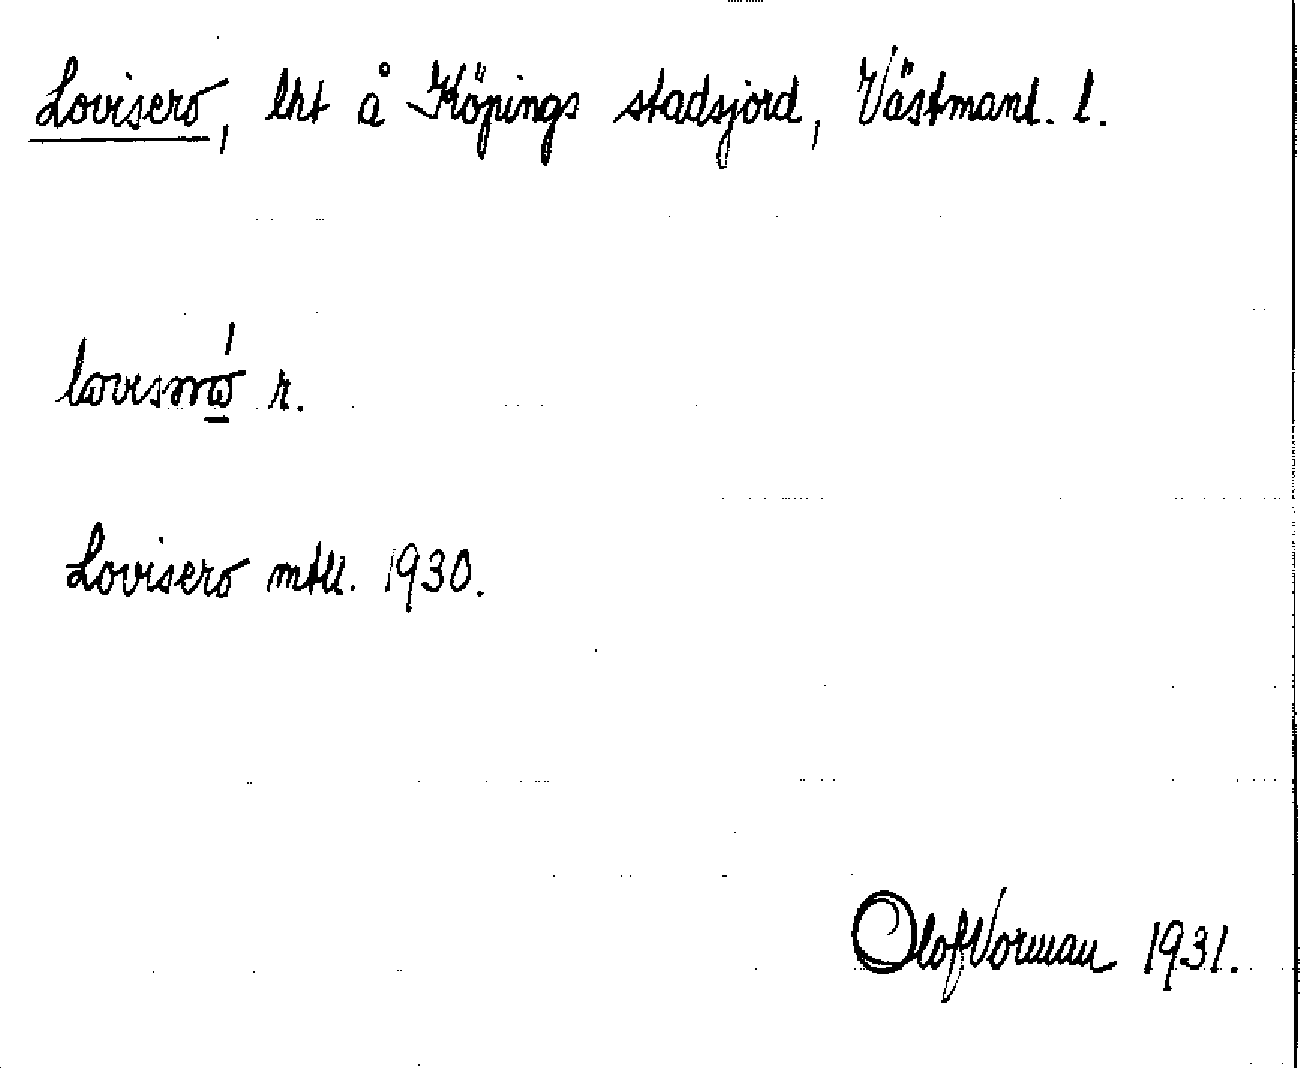 Lovisero, lht å Köpings stadsjord, Västmanl. l.
r.
Lovisero mtll. 1930.
Olof Vorman 1931.